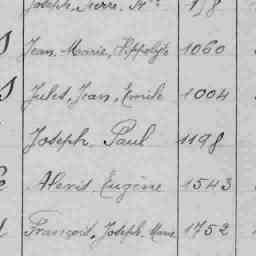 Joseph, Pierre, M
Jean Marie, Hippolyte 1060
Jules, Jean, Emile 1004
Joseph Paul 1198
Alexis Eugène 1543
François, Joseph, Marie 1752